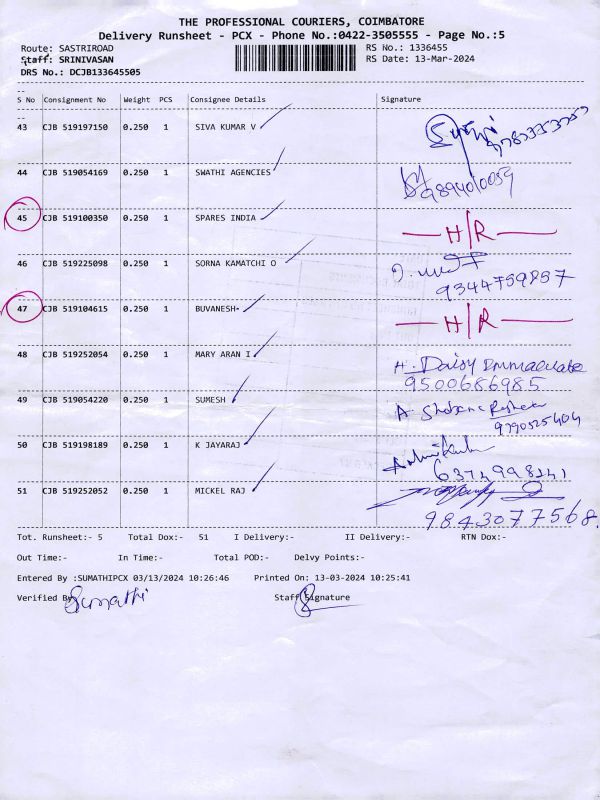 THE PROFESSIONAL COURIERS, COIMBATORE
Delivery Runsheet - PCX - Phone No.:0422-3505555 - Page No.:5
Route: SASTRIROAD
RS No.: 1336455
Staff: SRINIVASAN
RS Date: 13-Mar-2024
DRS No.: DCJB133645505
S No Consignment No Weight PCS Consignee Details Signature
43 CJB 519197150 0.250 1 SIVA KUMAR V
44 CJB 519054169 0.250 1 SWATHI AGENCIES 9894010059
45 CJB 519100350 0.250 1 SPARES INDIA H/R
46 CJB 519225098 0.250 1 SORNA KAMATCHI O
9344759857
47 CJB 519104615 0.250 1 BUVANESH- H/R
48 CJB 519252054 0.250 1 MARY ARAN I H. Daisy Immaculate
9500686985
49 CJB 519054220 0.250 1 SUMESH A
9790525404
50 CJB 519198189 0.250 1 K JAYARAJ
6374998141
51 CJB 519252052 0.250 1 MICKEL RAJ
9843077568.
Tot. Runsheet:- 5 Total Dox:- 51 I Delivery:- II Delivery:- RTN Dox:-
Out Time:- In Time:- Total POD:- Delvy Points:-
Entered By :SUMATHIPCX 03/13/2024 10:26:46 Printed On: 13-03-2024 10:25:41
Verified By Sumathi Staff Signature